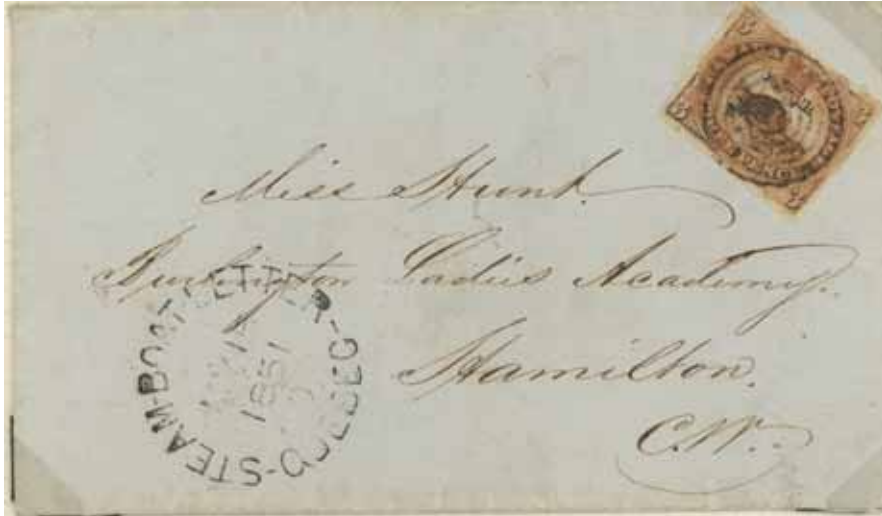 3 3
3 3
Miss Hunt.
Burlington Ladies Academy.
Hamilton.
C.W.
STEAM-BOAT LETTER-QUEBEC-
1851